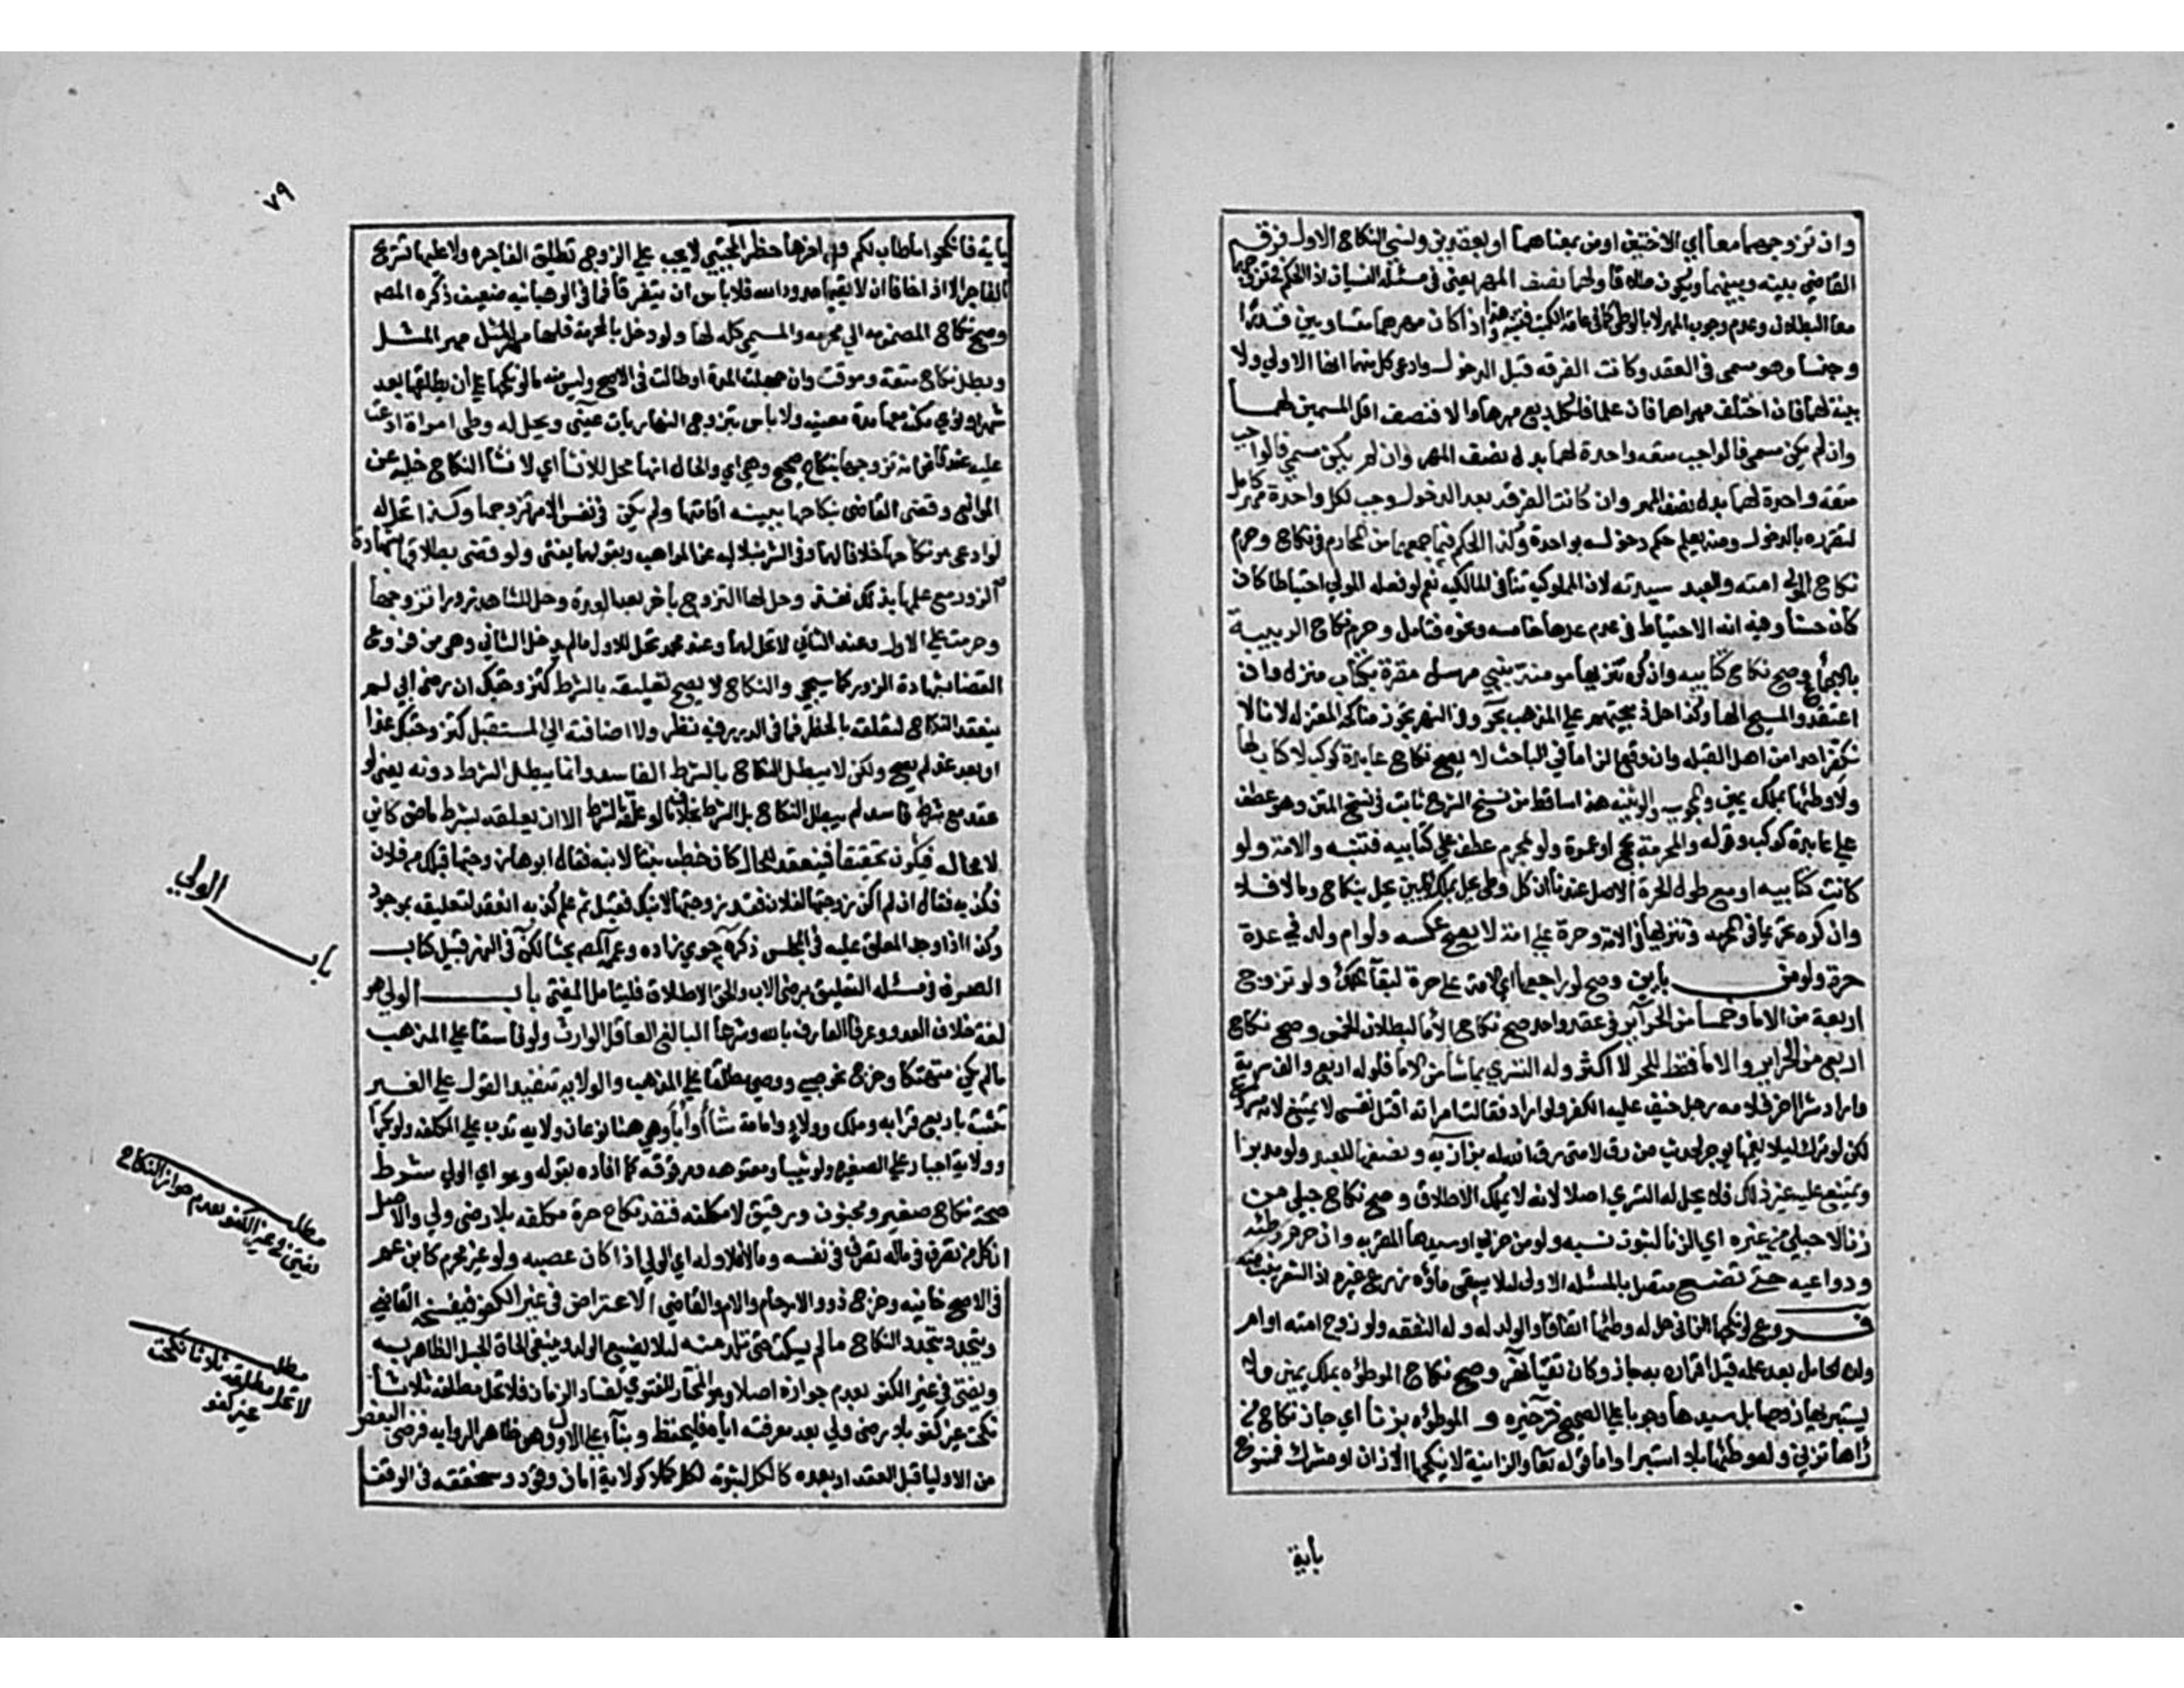 وان تزوجهما معا أي الاختين اومن بمعناهما او بعقدين ونسي النكاح الاول فرق
القاضي بينه وبينهما ويكون طلاقا ولهما نصف المهر يعني في مسئلة النسيان اذ الحكم في تزوجهما
معا البطلان وعدم وجوب المهر الا بالوطئ كما في عامة الكتب فتنبه وهذا اذا كان مهرهما متساويين قدرا
وجنسا وهو مسمى في العقد وكانت الفرقه قبل الدخول وادعى كل منهما انها الاولي ولا
بينة لهما فان اختلف مهراهما فان علما فلكل ربع مهرها والا فنصف اقل المسميين لهما
وان لم يكن مسمي فالواجب متعه واحدة لهما بدل نصف المهر وان لم يكن مسمي فالواجب
متعه واحدة لهما بدل نصف المهر وان كانت الفرقه بعد الدخول وجب لكل واحدة مهر كامل
لتقرره بالدخول ومنه يعلم حكم دخوله بواحدة وكذا الحكم فيما جمعهما من المحارم في نكاح وحرم
نكاح المولي امته والعبد سيدته لان المملوكيه تنافي المالكيه نعم لو فعله المولي احتياطا كان
كان حسنا وفيه انه الاحتياط في عدم عدها خامسه ونحوه فتامل وحرم نكاح الوثنية
بالاجماع وصح نكاح كتابيه وان كره تنزيها مومنة بنبي مرسل مقرة بكتاب منزل وان
اعتقدوا المسيح الها وكذا حل ذبيحتهم علي المذهب بحر وفي النهر تجوز مناكحة المعتزله لانا لا
نكفر احدا من اهل القبله وان وقع الزاما في المباحث لا يصح نكاح عابدة كوكب لا كتاب لها
ولا وطئها بملك يمين والمجوسيه والوثنيه هذا ساقط من نسخ الشرح ثابت في نسخ المتن وهو عطف
علي عابدة كوكب وقوله والمحرمة بحج او عمرة ولو بمحرم عطف علي كتابيه فتنبه والامة ولو
كانت كتابيه او مع طول الحرة الاصل عندنا ان كل وطئ يحل بملك يمين يحل بنكاح وما لا فلا
وان كره تحريما في المحرمه وتنزيها في الامة وحرة علي امة لا يصح عكسه ولو ام ولد في عدة
حرة ولو من بائن وصح لو راجعها اي الامة علي حرة لبقآء الملك ولو تزوج
اربعة من الاماء وخمسا من الحرآير في عقد واحد صح نكاح الاما لبطلان الخمس وصح نكاح
اربع من الحراير والاما فقط للحر لا اكثر وله التسري بما شأ من الاما فلو له اربع والف سرية
واراد شرا اخرى فلامه رجل خيف عليه الكفر ولو اراد فقالت امراته اقتل نفسي لا يمتنع لانه مشروع
لكن لو ترك ليلا يغمها يوجر لحديث من رق لامتي رق الله له بزازيه ونصفها للعبد ولو مدبرا
ويمتنع عليه غير ذلك فلا يحل له التسري اصلا لانه لا يملك الاطلاق وصح نكاح حبلى من
زنا لا حبلي من غيره اي الزنا لثبوت نسبه ولو من حربي او سيدها المقر به وان حرم وطئها
ودواعيه حتي تضع متصل بالمسئله الاولى ليلا يسقي مآؤه زرع غيره اذ الشعر ينبت منه
فروع لو نكحها الزاني حل له وطئها اتفاقا والولد له وله النفقه ولو زوج امته او ام
ولده الحامل بعد علمه قبل اقراره به جاز وكان نفيا نهر وصح نكاح الموطؤه بملك يمين ولا
يستبريها زوجها بل سيدها وجوبا علي الصحيح ذخيره و الموطؤه بزنا أي جاز نكاح من
رآها تزني وله وطئها بلا استبرا واما قوله تعا والزانية لا ينكحها الا زان او مشرك فمنسوخ
بأية
٧٩
بأية فانكحوا ما طاب لكم وفي اخر حظر المجتبي لا يجب علي الزوج تطليق الفاجره ولا عليها تسريح
الفاجر الا اذا خافا ان لا يقيما حدود الله فلا باس ان يتفرقا فما في الوهبانيه ضعيف ذكره المصـ
وصح نكاح المضمومه الي محرمه والمسمي كله لها ولو دخل بالمحرمة فلها مهر المثل
وبطل نكاح متعة وموقت وان جهلت المدة او طالت في الاصح وليس منه ما لو نكحها علي أن يطلقها بعد
شهر او نوي مكثه معها مدة معينه ولا باس بتزوج النهاريات عيني ويحل له وطى امراة ادعت
عليه عند قاض انه تزوجها بنكاح صحيح وهي اي والحال انها محل للانشآ اي لانشآ النكاح خليه عن
الموانع وقضي القاضي بنكاحها ببينه اقامتها ولم يكن في نفس الامر تزوجها وكذا تحل له
لو ادعي هو نكاحها خلافا لهما وفي الشرنبلاليه عن المواهب وبقولهما يفتي ولو قضى بطلاقها بشهادة
الزور مع علمها بذلك نفذ وحل لها التزوج بأخر بعد العدة وحل للشاهد زورا تزوجها
وحرمت علي الاول وعند الثاني لا تحل لهما وعند محمد تحل للاول مالم يدخل الثاني وهي من فروع
القضا بشهادة الزور كما سيجي والنكاح لا يصح تعليقه بالشرط كتزوجتك ان رضي ابي لم
ينعقد النكاح لتعلقه بالخطر فما في الدرر فيه نظر ولا اضافته الي المستقبل كتزوجتك غدا
او بعد غد لم يصح ولكن لا يبطل النكاح بالشرط الفاسد وانما يبطل الشرط دونه يعني لو
عقد مع شرط فاسد لم يبطل النكاح بل الشرط بخلاف ما لو علقه بالشرط الا ان يعلقه بشرط ماض كاين
لا محاله فيكون تحقيقا فينعقد للحال كان خطب بنتا لابنه فقال ابوها زوجتها قبلك من فلان
فكذبه فقال ان لم اكن زوجتها لفلان فقد زوجتها لابنك فقبل ثم علم كذبه انعقد لتعليقه بموجود
وكذا اذا وجد المعلق عليه في المجلس ذكره جوي زاده وعممه المصـ بحثا لكن في النهر قبيل كتاب
الصرف في مسئله التعليق برضى الاب والحق الاطلاق فليتامل المفتي باب الولي هو
لغة خلاف العدو وعرفا العارف بالله وشرعا البالغ العاقل الوارث ولو فاسقا علي المذهب
مالم يكن متهتكا وخرج نحو صبي ووصي مطلقا علي المذهب والولاية تنفيذ القول علي الغير
تثبت باربع قرابه وملك وولاء وامامة شآ او أبآ وهي هنا نوعان ولاية ندب علي المكلفه ولو بكرا
وولاية اجبار علي الصغيره ولو ثيبا ومعتوهه ومرقوقه كما افاده بقوله وهو اي الولي شرط
صحة نكاح صغير ومجنون ورقيق لا مكلفه فنفذ نكاح حرة مكلفه بلا رضى ولي والاصل
ان كل من تصرف في ماله تصرف في نفسه وما لا فلا وله اي الولي اذا كان عصبه ولو غير محرم كابن عم
في الاصح خانيه وخرج ذوو الارحام والام والقاضي الاعتراض في غير الكفؤ فيفسخه القاضي
ويتجدد بتجدد النكاح مالم يسكت حتى تلد منه ليلا يضيع الولد وينبغي الحاق الحبل الظاهر به
ويفتى في غير الكفو بعدم جوازه اصلا وهو المختار للفتوي لفساد الزمان فلا تحل مطلقه ثلاثا
نكحت غير كفو بلا رضي ولي بعد معرفته اياه فليحفظ وبنآء علي الاول وهو ظاهر الروايه فرضى البعض
من الاوليا قبل العقد او بعده كالكل لثبوته لكل كملا كولاية أمان وقود وسنحققه في الوقف
باب الولي
مطلب
يفتى في غير الكفو بعدم جواز النكاح
مطلب
لا تحل مطلقه ثلاثا نكحت
غير كفو